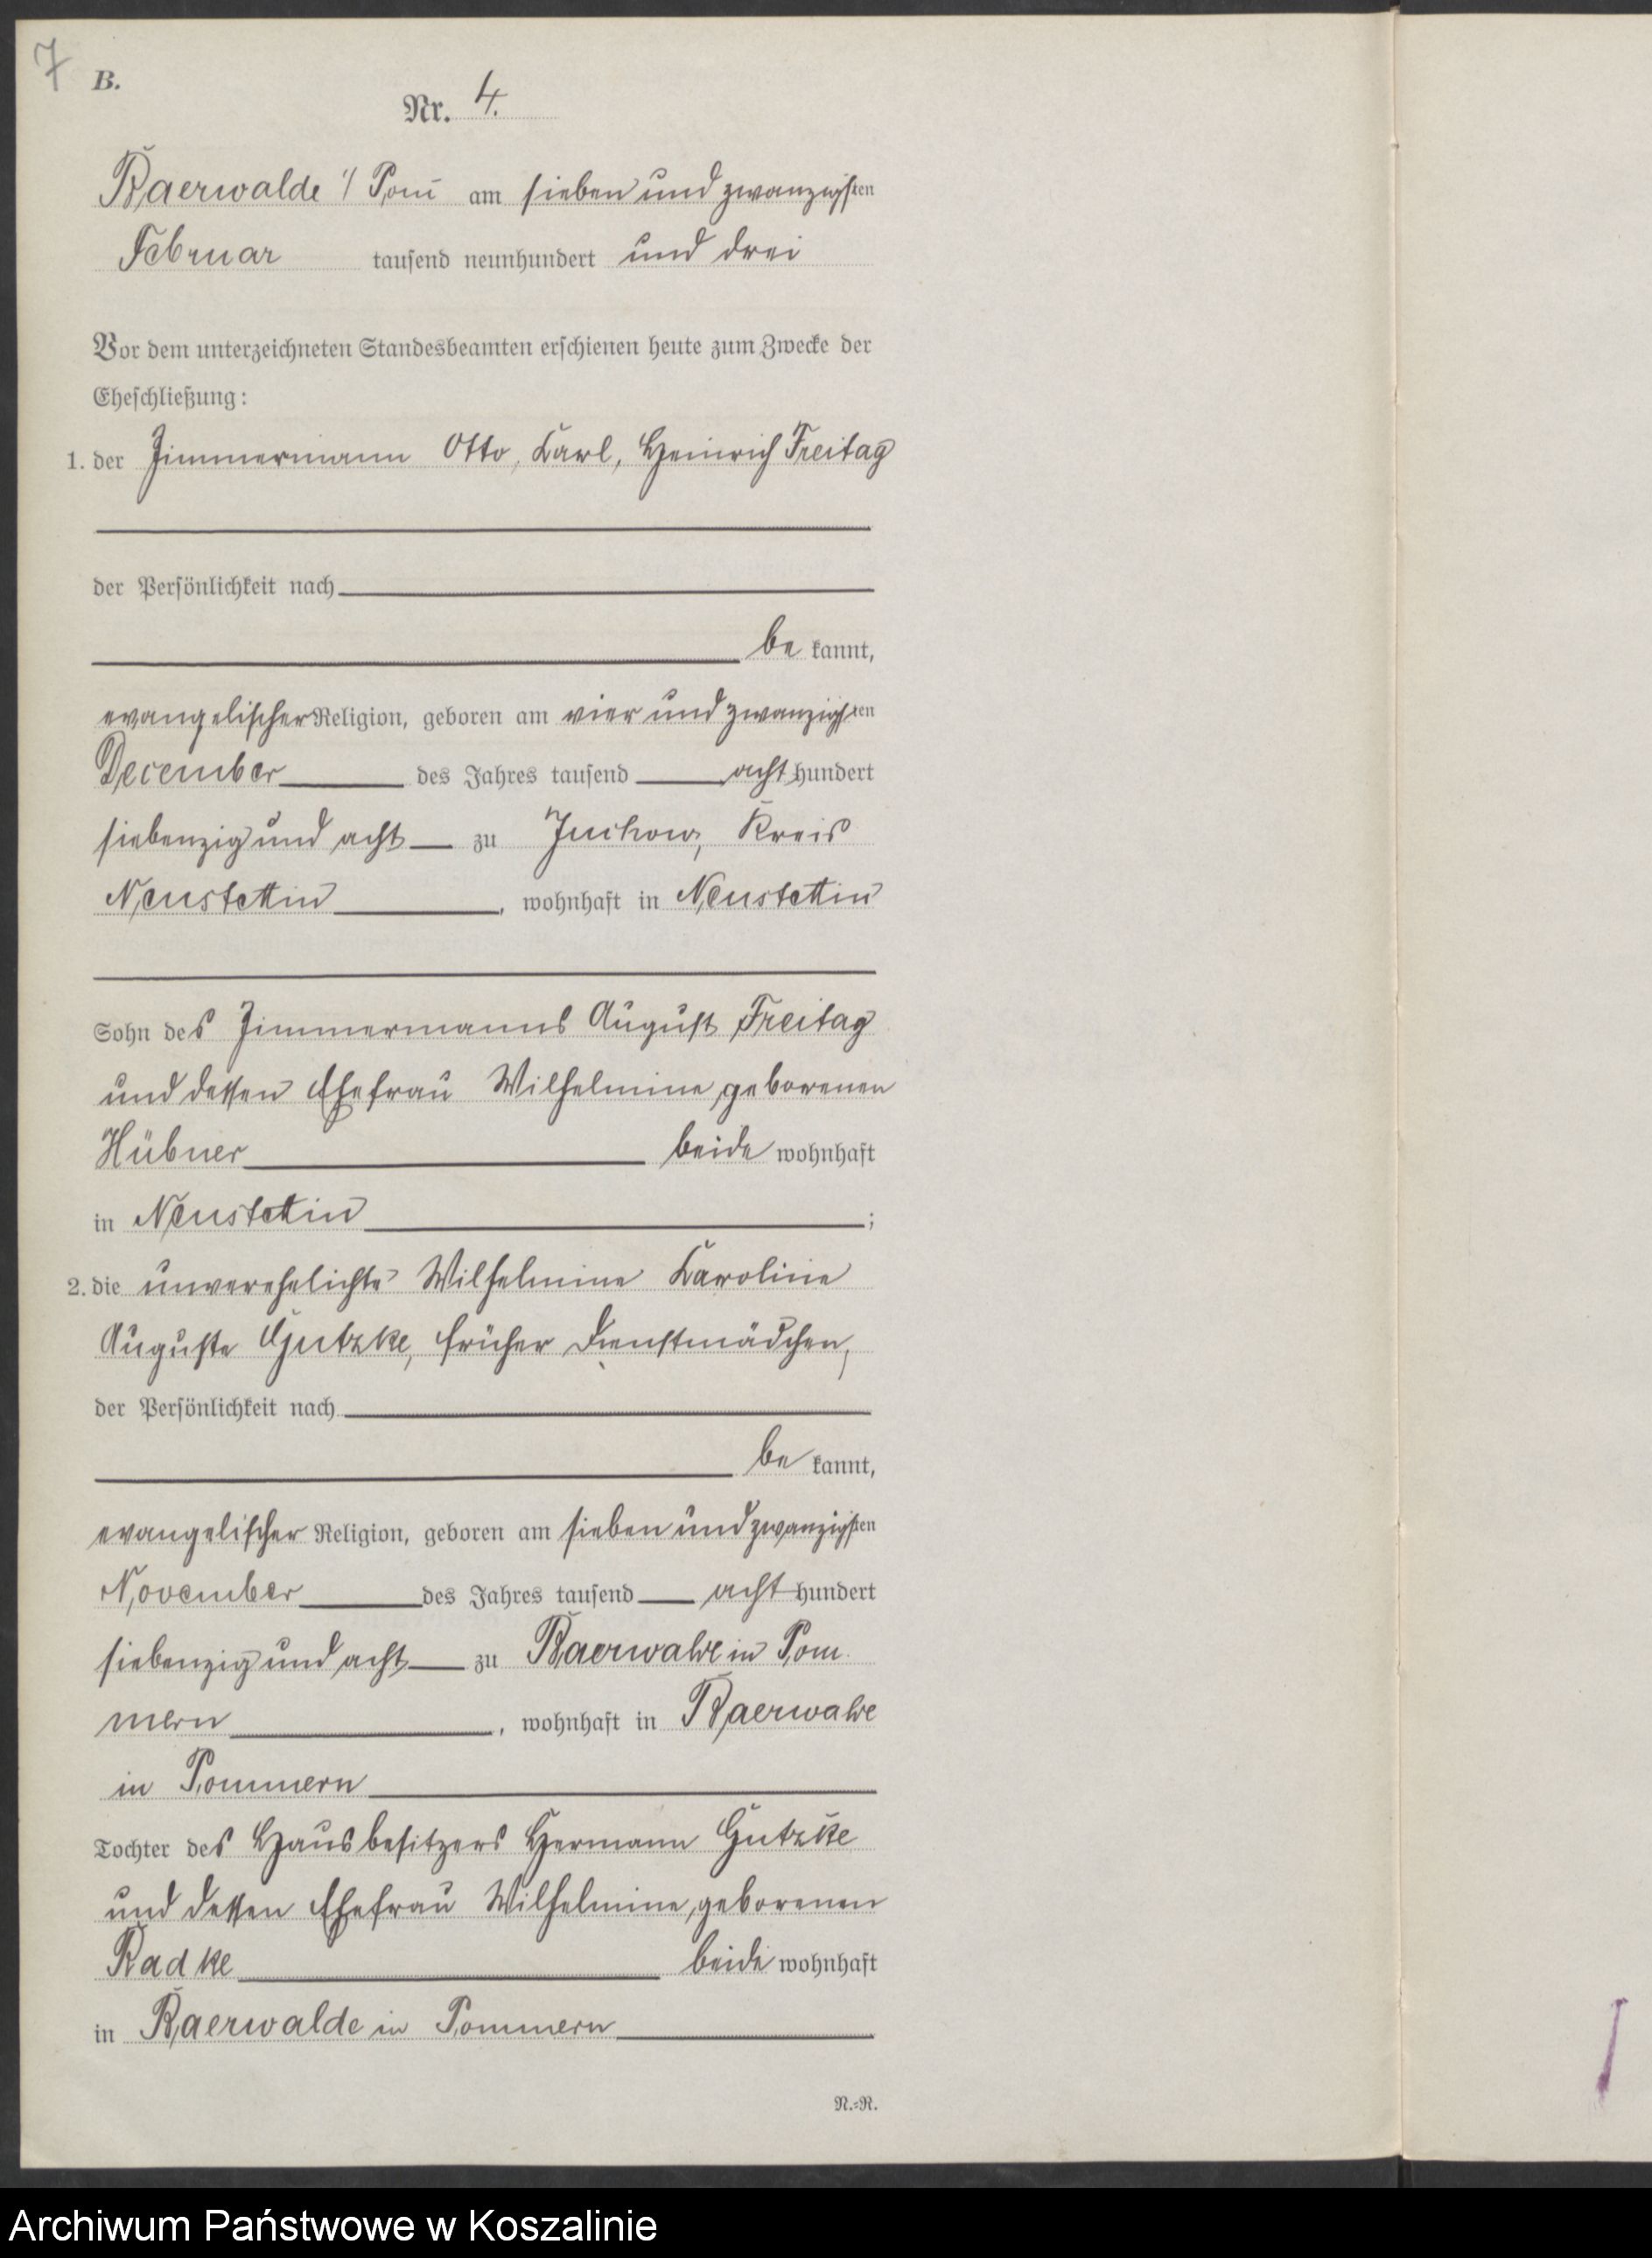 7
B.
Nr. 4.
Baerwalde i/ Pom̄ am sieben und zwanzigsten
Februar tausend neunhundert und drei
Vor dem unterzeichneten Standesbeamten erschienen heute zum Zwecke der
Eheschließung:
1. der Zimmermann Otto, Carl, Heinrich Freitag
der Persönlichkeit nach
be kannt,
evangelischer Religion, geboren am vier und zwanzigsten
December des Jahres tausend acht hundert
siebenzig und acht zu Juchow, Kreis
Neustettin, wohnhaft in Neustettin
Sohn des Zimmermanns August Freitag
und dessen Ehefrau Wilhelmine, geborenen
Hübner beide wohnhaft
in Neustettin;
2. die unverehelichte Wilhelmine Caroline
Auguste Gutzke, früher Dienstmädchen,
der Persönlichkeit nach
be kannt,
evangelischer Religion, geboren am sieben und zwanzigsten
November des Jahres tausend acht hundert
siebenzig und acht zu Baerwalde in Pom
mern, wohnhaft in Baerwalde
in Pommern
Tochter des Hausbesitzers Hermann Gutzke
und dessen Ehefrau Wilhelmine, geborenen
Radke beide wohnhaft
in Baerwalde in Pommern
N.=R.
Archiwum Państwowe w Koszalinie